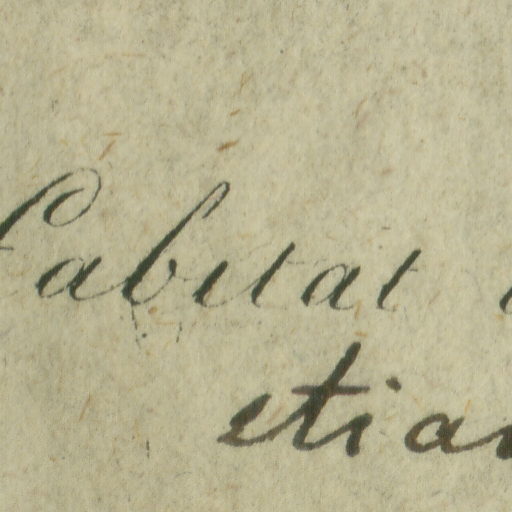 Habitat
etiam